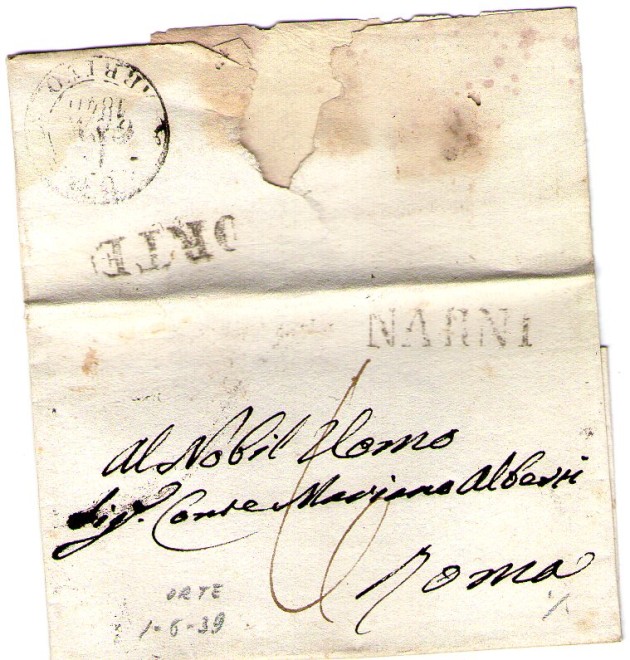 ORTE
NARNI
Al Nobil Uomo
Sigr. Conte Mariano Alberti
Roma
ORTE
1-6-39